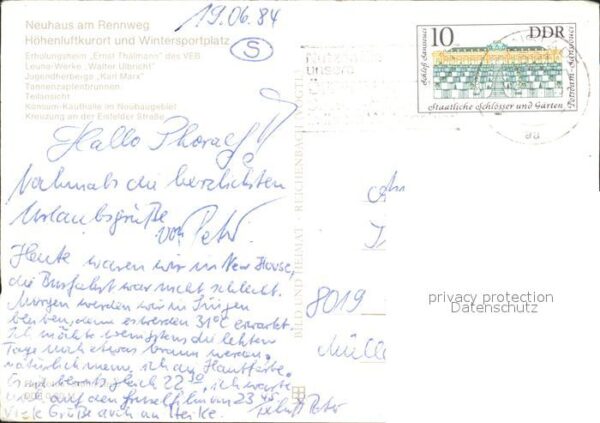 19.06.84
Neuhaus am Rennweg
Höhenluftkurort und Wintersportplatz
Erholungsheim „Ernst Thälmann" des VEB
Leuna-Werke „Walter Ulbricht"
Jugendherberge „Karl Marx"
Tannenzapfenbrunnen
Teilansicht
Konsum-Kaufhalle im Neubaugebiet
Kreuzung an der Eisfelder Straße
S
10 DDR
Schloß Sanssouci
Potsdam-Sanssouci
Staatliche Schlösser und Gärten
unsere
Hallo
Nochmals die herzlichsten
Urlaubsgrüße
von Peter.
Heute waren wir in New House,
die Busfahrt war nicht schlecht.
Morgen werden wir in
bleiben, denn es werden 31°C erwartet.
Ich möchte wenigstens die letzten
Tage noch etwas braun werden.
natürlich meine ich an Hautfarbe.
Es ist bereits gleich 22 30, ich warte
auf den Gruselfilm um 23 45
Viele Grüße auch an Heike. Tschüß Peter
BILD UND HEIMAT · REICHENBACH (VOGTL)
8019
Mülle
privacy protection
Datenschutz